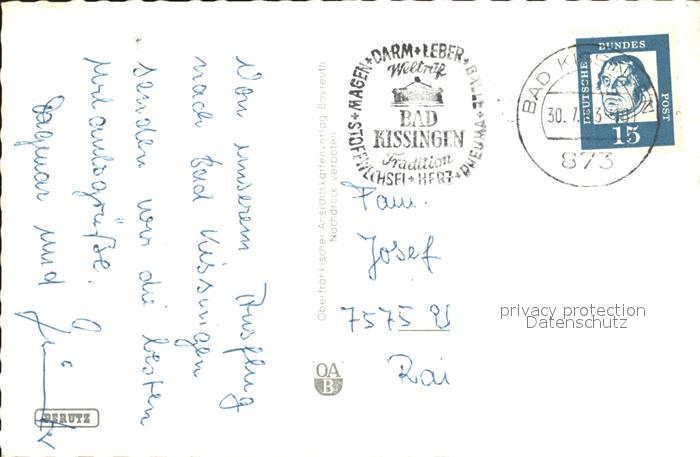 Von unserem Ausflug
nach Bad Kissingen
senden wir die besten
Urlaubsgrüße.
Dagmar und Günter
PERUTZ
Oberfränkischer Ansichtskartenverlag Bayreuth
Nachdruck verboten
OA
B
MAGEN + DARM + LEBER + GALLE + RHEUMA + HERZ + STOFFWECHSEL +
Weltruf
BAD
KISSINGEN
Tradition
BAD KISSINGEN
30.7.
873
DEUTSCHE
BUNDES
POST
15
Fam.
Josef
7575
Rai
privacy protection
Datenschutz